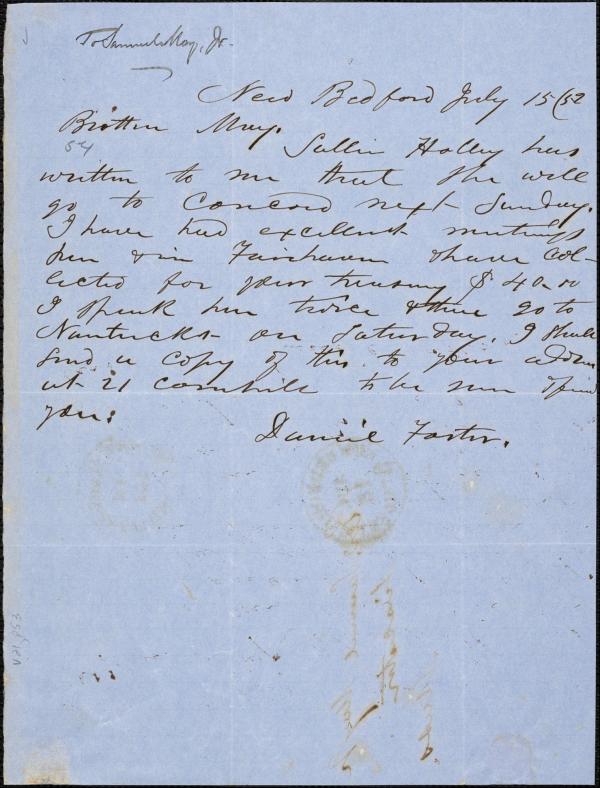 To Samuel May, Jr.
New Bedford July 15/52
Brother May.
54
Sallie Holley has
written to me that she will
go to Concord next Sunday.
I have had excellent meetings
here & in Fairhaven & have col-
lected for your treasury $ 40.00
I speak here twice & then go to
Nantucket on Saturday. I shall
send a copy of this to your address
at 21 Cornhill to be sure
you:
Daniel Foster.